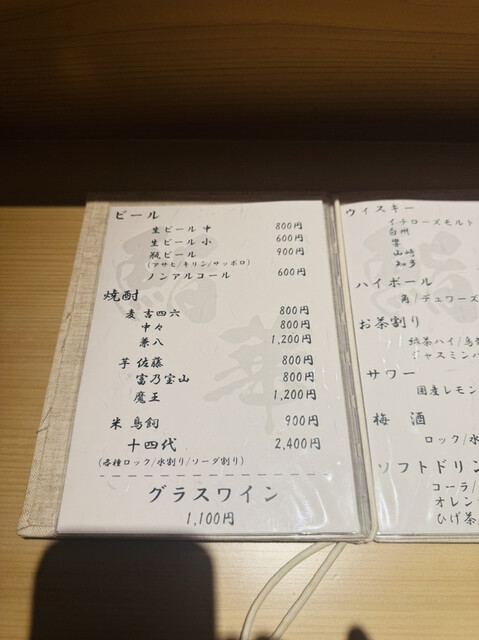 ビール
生ビール 中 800円
生ビール 小 600円
瓶ビール 900円
(アサヒ/キリン/サッポロ)
ノンアルコール 600円
焼酎
麦 吉四六 800円
中々 800円
兼八 1,200円
芋 佐藤 800円
富乃宝山 800円
魔王 1,200円
米 鳥飼 900円
十四代 2,400円
(各種ロック/水割り/ソーダ割り)
グラスワイン
1,100円
ウィスキー
イチローズモルト
白州
響
山崎
知多
ハイボール
角/デュワーズ
お茶割り
緑茶ハイ/烏
ジャスミン
サワー
国産レモン
梅 酒
ロック/水
ソフトドリン
コーラ/
オレン
ひげ茶
鮨
華
鮨